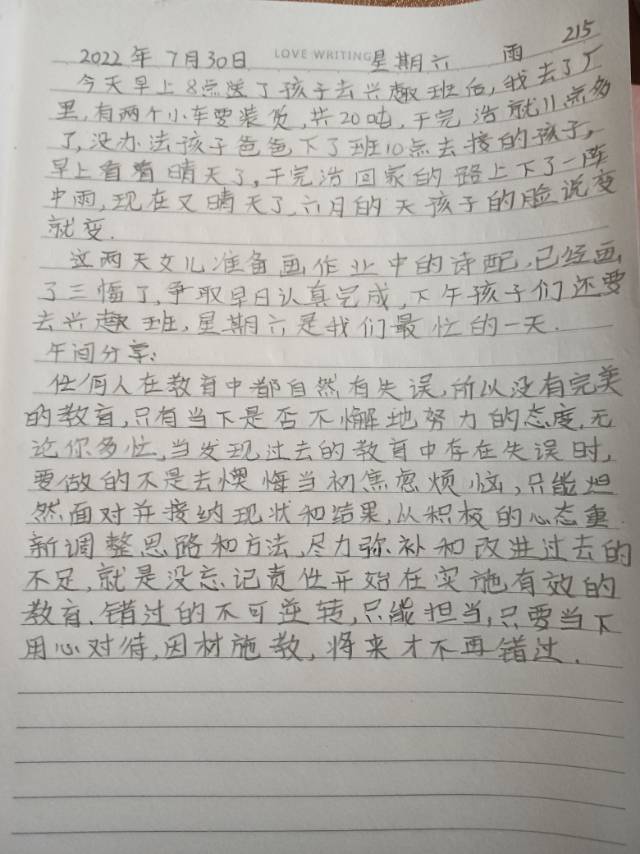 215
2022年 7月30日 LOVE WRITING 星期六 雨
今天早上8点送了孩子去兴趣班后,我去了厂
里,有两个小车要装货,共20吨,干完活就11点多
了,没办法孩子爸爸下了班10点去接的孩子,
早上看着晴天了,干完活回家的路上下了一阵
中雨,现在又晴天了,六月的天孩子的脸说变
就变.
这两天女儿准备画作业中的诗配,已经画
了三幅了,争取早日认真完成,下午孩子们还要
去兴趣班,星期六是我们最忙的一天.
午间分享:
任何人在教育中都自然有失误,所以没有完美
的教育,只有当下是否不懈地努力的态度,无
论你多忙,当发现过去的教育中存在失误时,
要做的不是去懊悔当初焦虑烦恼,只能坦
然面对并接纳现状和结果,从积极的心态重
新调整思路和方法,尽力弥补和改进过去的
不足,就是没忘记责任开始在实施有效的
教育.错过的不可逆转,只能担当,只要当下
用心对待,因材施教,将来才不再错过.